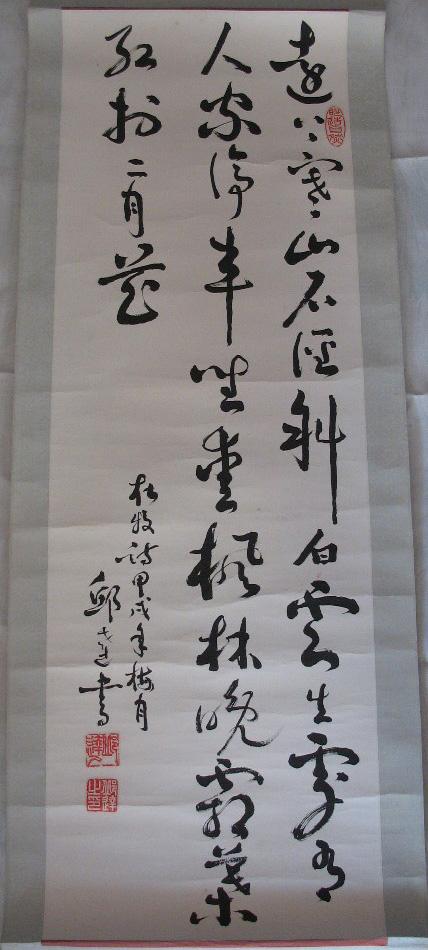 遠上寒山石徑斜白雲生處有
人家停車坐愛楓林晚霜葉
紅於二月花
杜牧詩甲戌年梅月
邱達書